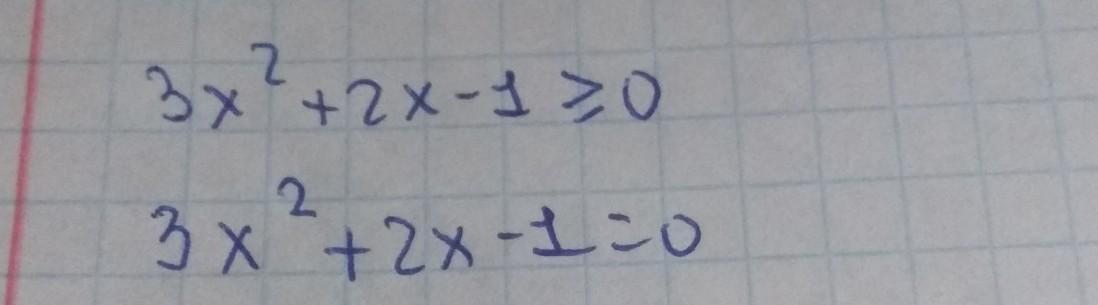 3x² + 2x - 1 ⩾ 0
3x² + 2x - 1 = 0